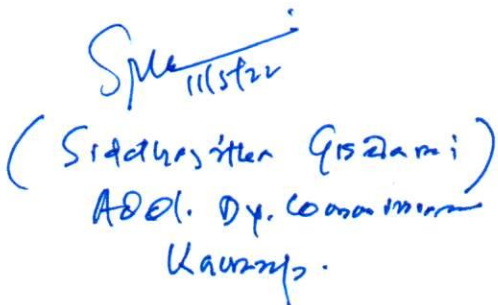 11/5/22
(Siddhartha Goswami)
Addl. Dy. Commissioner
Kamrup.